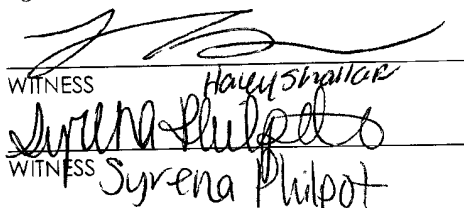 WITNESS Haley Shallar
Syrena Philpot
WITNESS Syrena Philpot